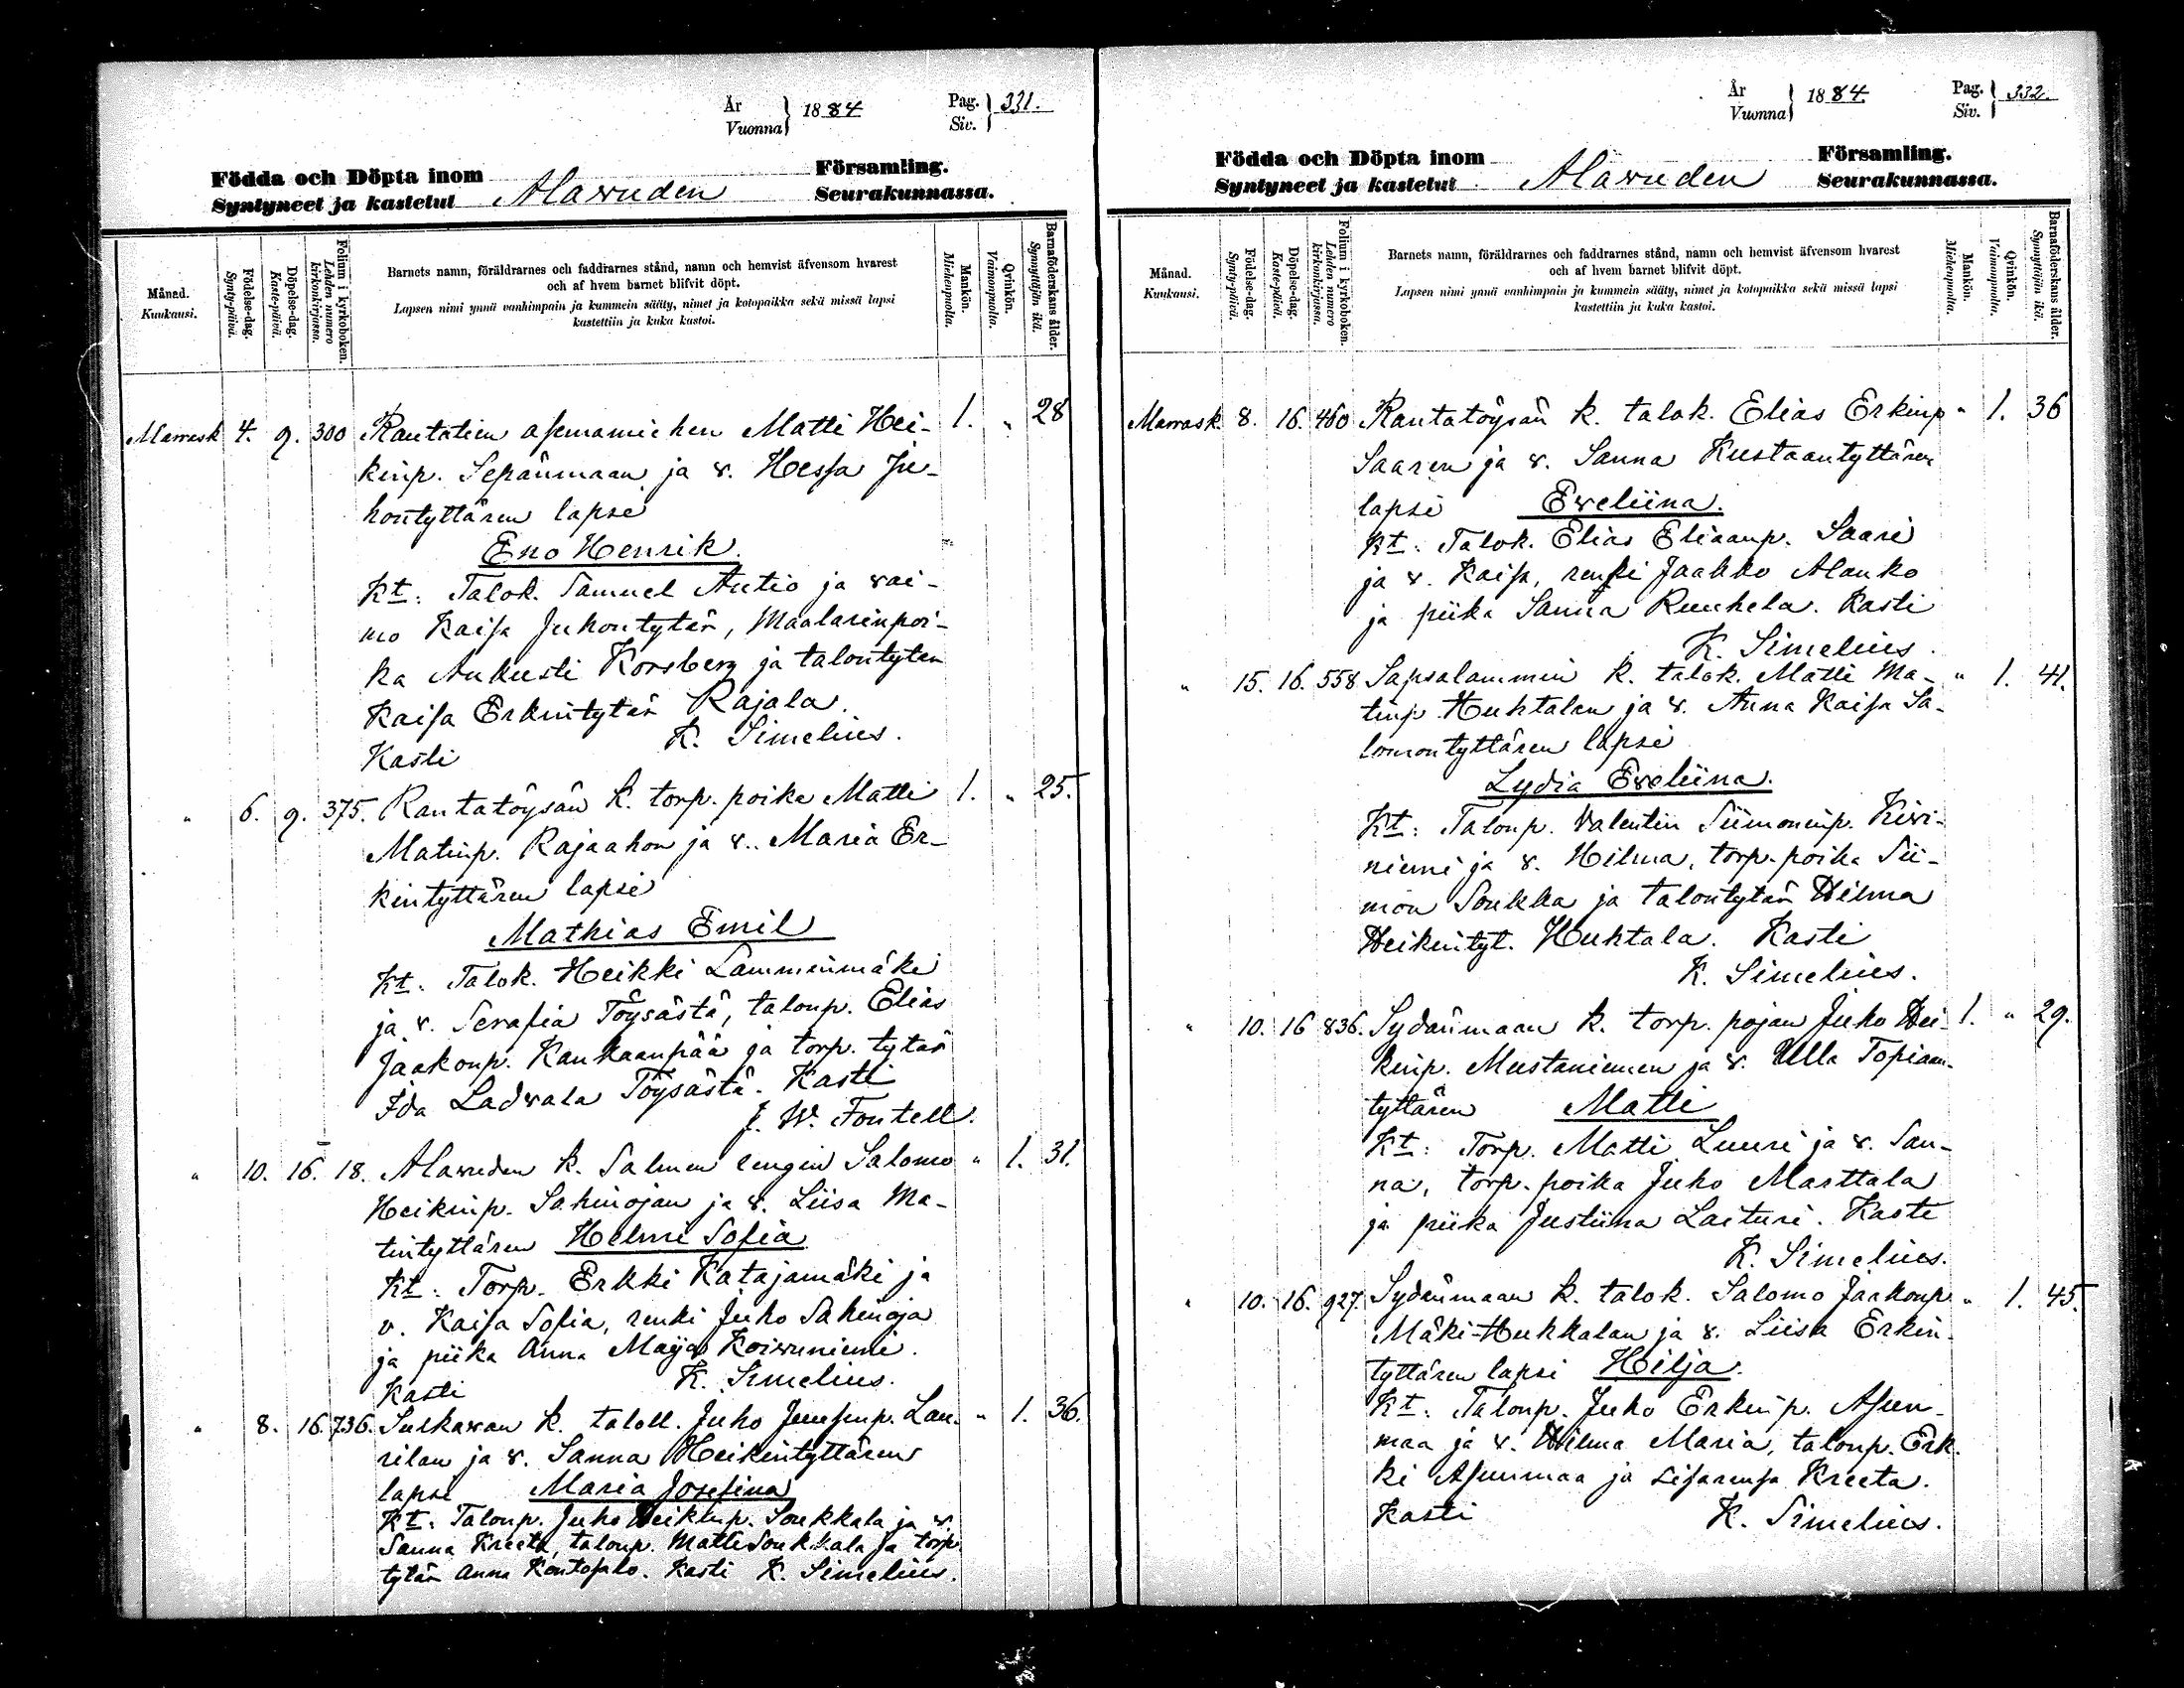 År
Vuonna } 1884
Pag.
Siv. } 331.
Födda och Döpta inom
Syntyneet ja kastetut
Alawuden
Församling.
Seurakunnassa.
Månad.
Kuukausi.
Födelse-dag.
Synty-päivä.
Döpelse-dag.
Kaste-päivä.
Folium i kyrkoboken.
Lehden numero
kirkonkirjassa.
Barnets namn, föräldrarnes och faddrarnes stånd, namn och hemvist äfvensom hvarest
och af hvem barnet blifvit döpt.
Lapsen nimi ynnä vanhimpain ja kummein sääty, nimet ja kotopaikka sekä missä lapsi
kastettiin ja kuka kastoi.
Mankön.
Miehenpuolta.
Qvinkön.
Vaimonpuolta.
Barnaföderskans ålder.
Synnyttäjän ikä.
Marrask 4. 9. 300 Rautatien asemamiehen Matti Hei- 1. " 28
kinp. Sepänmaan ja v. Hessa Ju-
hontyttären lapsi
Eno Henrik.
Kt: Talok. Samuel Autio ja vai-
mo Kaisa Juhontytär, Maalarinpoi-
ka Aukusti Korsberg ja talontytär
Kaisa Erkintytär Rajala.
Kasti K. Simelius.
" 6. 9. 375. Rantatöysän k. torp. poika Matti 1. " 25.
Matinp. Rajaahon ja v. Maria Er-
kintyttären lapsi
Mathias Emil
Kt: Talok. Heikki Lamminmäki
ja v. Serafia Töysästä, taloup. Elias
Jaakonp. Kankaanpää ja torp. tytär
Ida Ladvala Töysästä. Kasti
J. W. Fontell.
" 10. 16. 18. Alawuden k. Salmen rengin Salomo " 1. 31.
Heikinp. Sahinojan ja v. Liisa Ma-
tintyttären Helmi Sofia
Kt: Torp. Erkki Katajamäki ja
v. Kaisa Sofia, renki Juho Sahinoja
ja piika Anna Maija Koivuniemi.
Kasti K. Simelius.
" 8. 16. 736. Sulkavan k. taloll. Juho Juusenp. Lau- " 1. 36.
rilan ja v. Sanna Heikintyttären
lapsi Maria Josefina
Kt: Talonp. Juho Heikinp. Soukkala ja v.
Sanna Kreeta, talonp. Matti Soukkala ja torp.
tytär Anna Kontosalo. Kasti K. Simelius.
År
Vuonna } 1884.
Pag.
Siv. } 332.
Födda och Döpta inom
Syntyneet ja kastetut
Alavuden
Församling.
Seurakunnassa.
Månad.
Kuukausi.
Födelse-dag.
Synty-päivä.
Döpelse-dag.
Kaste-päivä.
Folium i kyrkoboken.
Lehden numero
kirkonkirjassa.
Barnets namn, föräldrarnes och faddrarnes stånd, namn och hemvist äfvensom hvarest
och af hvem barnet blifvit döpt.
Lapsen nimi ynnä vanhimpain ja kummein sääty, nimet ja kotopaikka sekä missä lapsi
kastettiin ja kuka kastoi.
Mankön.
Miehenpuolta.
Qvinkön.
Vaimonpuolta.
Barnaföderskans ålder.
Synnyttäjän ikä.
Marrask. 8. 16. 460 Rantatöysän k. talok. Elias Erkinp " 1. 36
Saaren ja v. Sanna Kustaantyttären
lapsi Eveliina.
Kt: Talok. Elias Eliaanp. Saari
ja v. Kaisa, renki Jaakko Alanko
ja piika Sanna Ruuhela. Kasti
K. Simelius.
" 15. 16. 558 Sapsalammin k. talok. Matti Ma- " 1. 41.
tinp. Huhtalan ja v. Anna Kaisa Sa-
lomontyttären lapsi
Lydia Eveliina.
Kt: Talonp. Valentin Siimoninp. Kivi-
niemi ja v. Hilma, torp. poika Sii-
mon Soukka ja talontytär Hilma
Heikintyt. Huhtala. Kasti
K. Simelius.
" 10. 16 836. Sydänmaan k. torp. pojan Juho Hei- 1. " 29.
kinp. Mustaniemen ja v. Ulla Topiaan-
tyttären Matti
Kt: Torp. Matti Luuri ja v. San-
na, torp. poika Juho Marttala
ja piika Justiina Laituri. Kasti
K. Simelius.
" 10. 16. 927. Sydänmaan k. talok. Salomo Jaakonp. " 1. 45.
Mäki-Hukkalan ja v. Liisa Erkin-
tyttären lapsi Hilja.
Kt: Talonp. Juho Erkinp. Asun-
maa ja v. Hilma Maria, talonp. Erk-
ki Asunmaa ja sisarensa Kreeta.
Kasti K. Simelius.